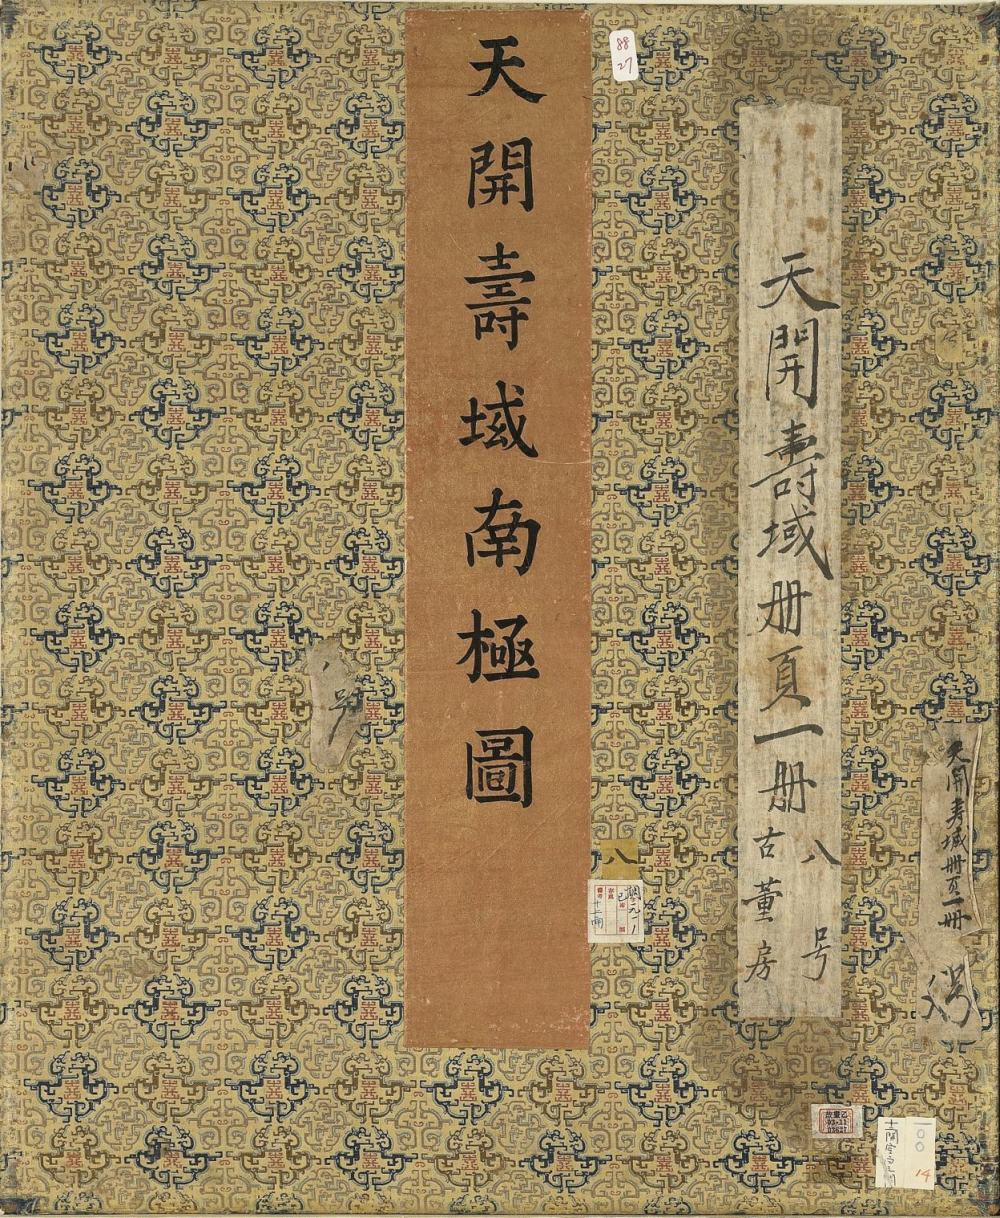 天開壽域南極圖
88
27
天開壽域册頁一册
八号
古董房
天開寿域册頁一册
八
十二開
14